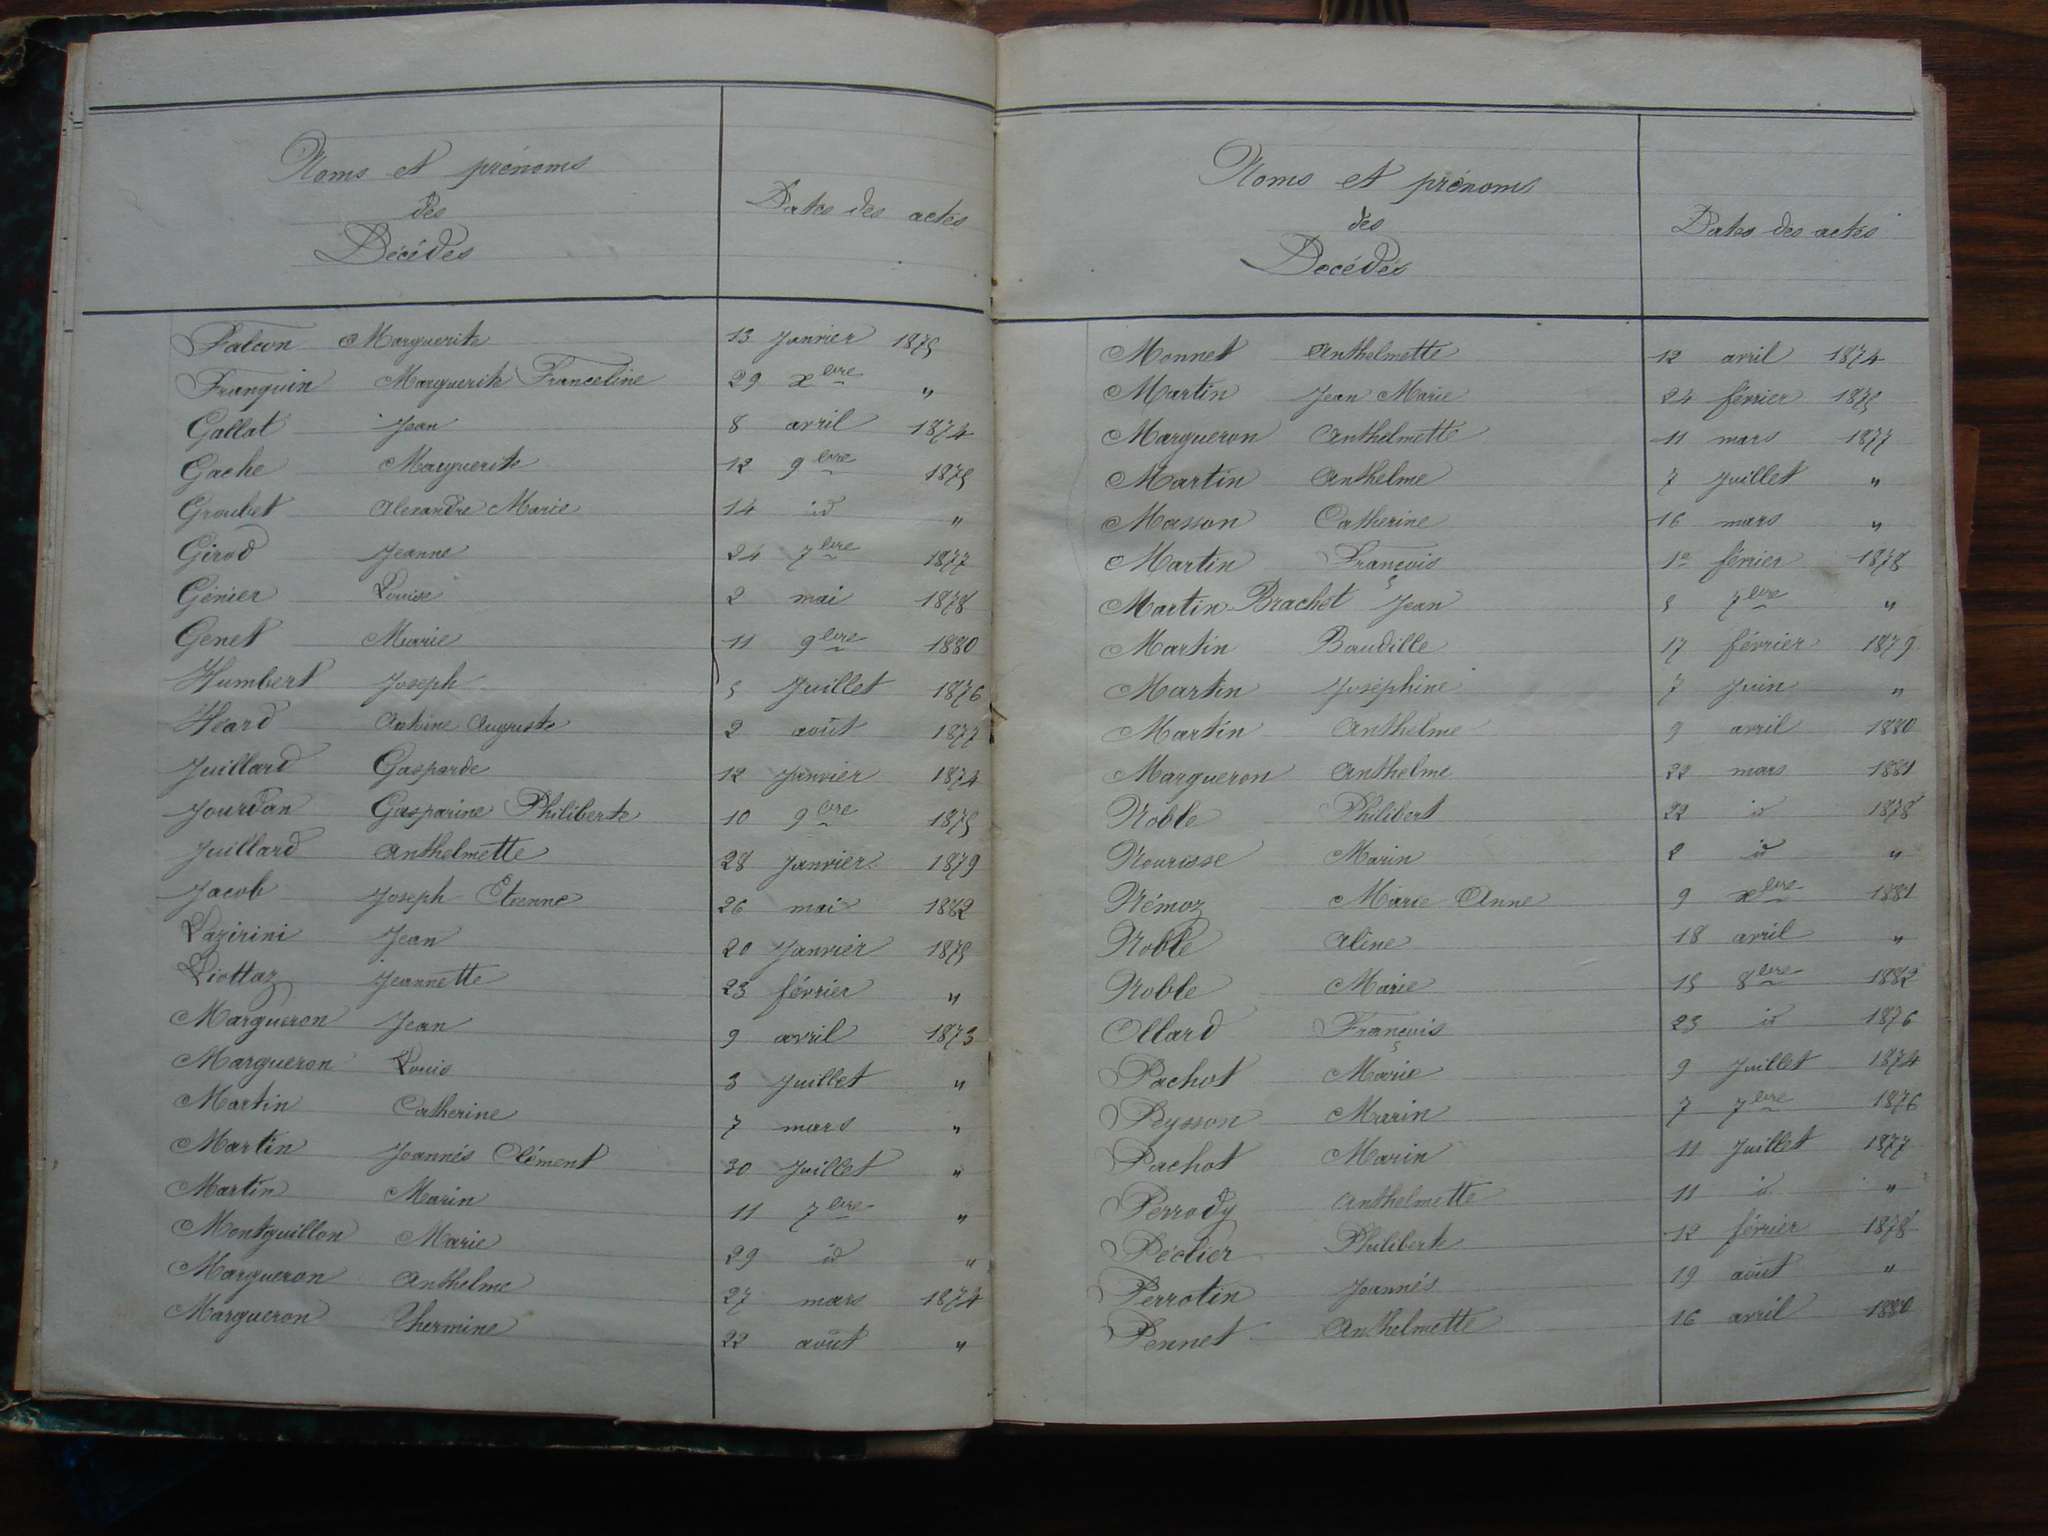 Noms et prénoms
des
Décédés
Dates des actes
Falcon Marguerite 13 Janvier 1875
Franquin Marguerite Franceline 29 xbre "
Gallat Jean 8 avril 1874
Gache Marguerite 12 9bre 1875
Groubet Alexandre Marie 14 id "
Girod Jeanne 24 7bre 1877
Génier Louise 2 mai 1878
Genet Marie 11 9bre 1880
Humbert Joseph 5 Juillet 1876
Heard Antoine Auguste 2 août 1877
Juillard Gasparde 12 Janvier 1874
Jourdan Gasparine Philiberte 10 9bre 1875
Juillard Anthelmette 28 Janvier 1879
Jacob Joseph Etienne 26 mai 1882
Lazirini Jean 20 Janvier 1875
Liottaz Jeannette 23 février "
Margueron Jean 9 avril 1873
Margueron Louis 3 Juillet "
Martin Catherine 7 mars "
Martin Joannès Clément 30 Juillet "
Martin Marin 11 7bre "
Montguillon Marie 29 id "
Margueron Anthelme 27 mars 1874
Margueron Thermine 22 août "
Noms et prénoms
des
Décédés
Dates des actes
Monnet Anthelmette 12 avril 1874
Martin Jean Marie 24 février 1875
Margueron Anthelmette 11 mars 1877
Martin Anthelme 7 Juillet "
Masson Catherine 16 mars "
Martin François 1er février 1878
Martin-Brachet Jean 5 7bre "
Martin Baudille 17 février 1879
Martin Joséphine 7 Juin "
Martin Anthelme 9 avril 1880
Margueron Anthelme 22 mars 1881
Noble Philibert 22 id 1878
Nourisse Marin 2 id "
Némoz Marie Anne 9 xbre 1881
Noble Aline 18 avril "
Noble Marie 15 8bre 1882
Ollard François 23 id 1876
Pachot Marie 9 Juillet 1874
Peysson Marin 7 7bre 1876
Pachot Marin 11 Juillet 1877
Perrody Anthelmette 11 id "
Péclier Philiberte 12 février 1878
Perrotin Joannès 19 août "
Pennet Anthelmette 16 avril 1880